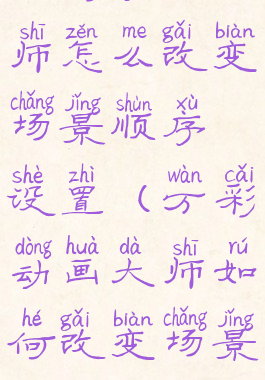 shī zěn me gǎi biàn
师怎么改变
chǎng jǐng shùn xù
场景顺序
shè zhì wàn cǎi
设置（万彩
dòng huà dà shī rú
动画大师如
hé gǎi biàn chǎng jǐng
何改变场景